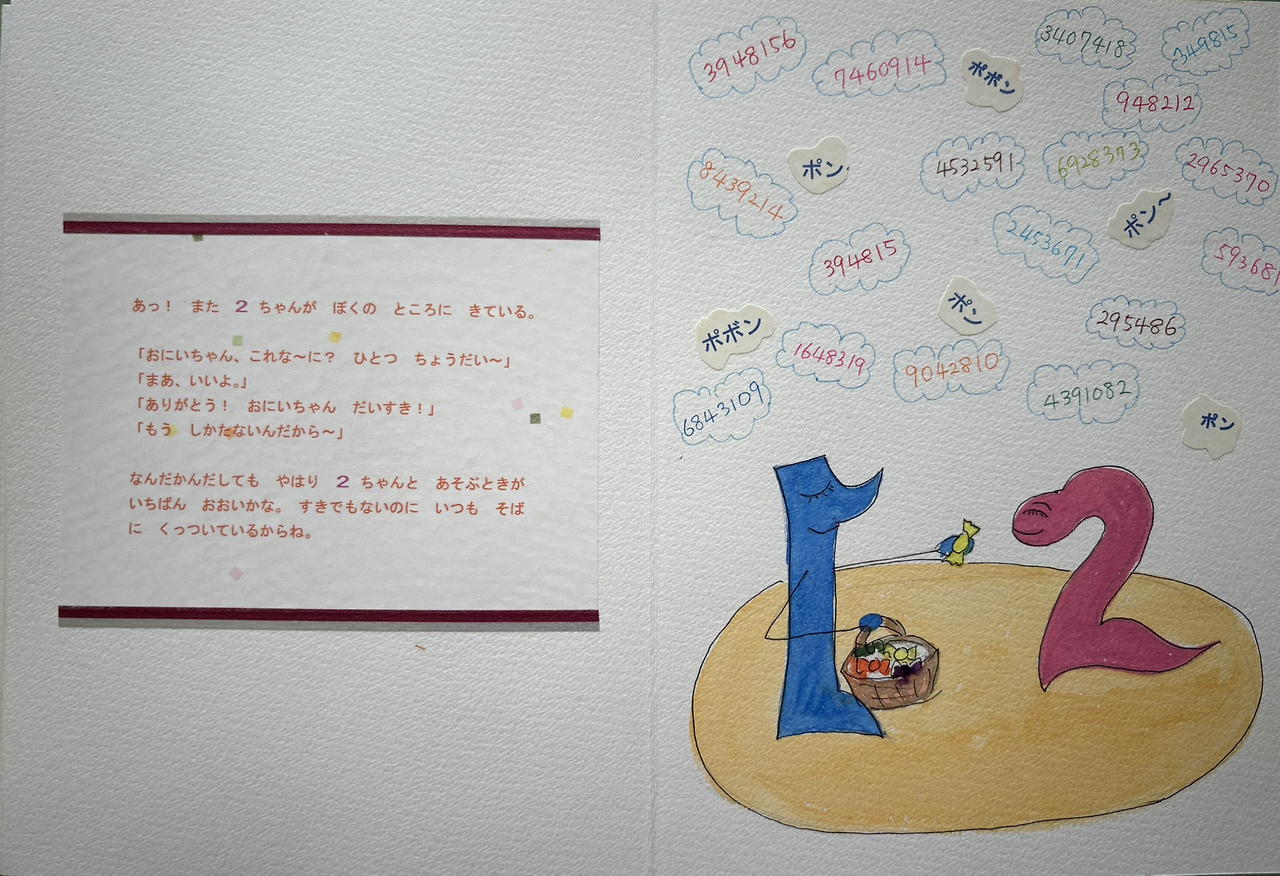 あっ！　また　２　ちゃんが　ぼくの　ところに　きている。
「おにいちゃん、これな～に？　ひとつ　ちょうだい～」
「まあ、いいよ。」
「ありがとう！　おにいちゃん　だいすき！」
「もう　しかたないんだから～」
なんだかんだしても　やはり　２　ちゃんと　あそぶときが
いちばん　おおいかな。　すきでもないのに　いつも　そば
に　くっついているからね。
3948156
7460914
ポポン
3407418
349815
948212
ポン
4532591
6928373
2965370
8439214
ポン～
2453671
394815
593681
ポン
ポポン
295486
1648319
9042810
4391082
6843109
ポン